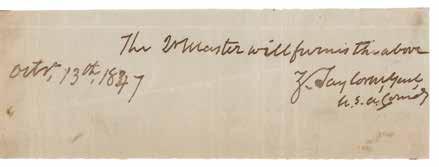 The QrMaster will furnish the above
Octr, 13th, 1847
Z. Taylor Maj. Genl,
U.S.A. Comdg